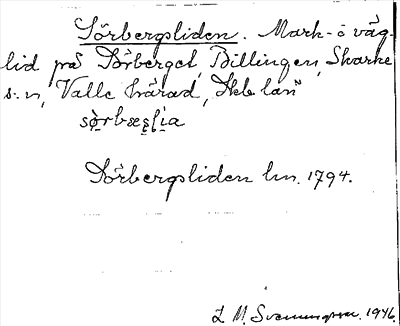 Sörbergsliden. Mark- o väg-
lid på Sörberget, Billingen, Skarke
s:n, Valle härad, Skb län
Sörbergsliden lm. 1794.
L. M. Svenungsson. 1946.